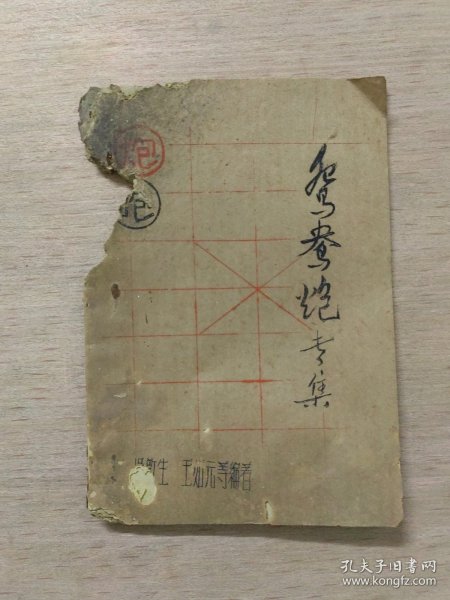 炮
炮
鸳鸯炮专集
生 王元等编著
孔夫子旧书网
www.kongfz.com